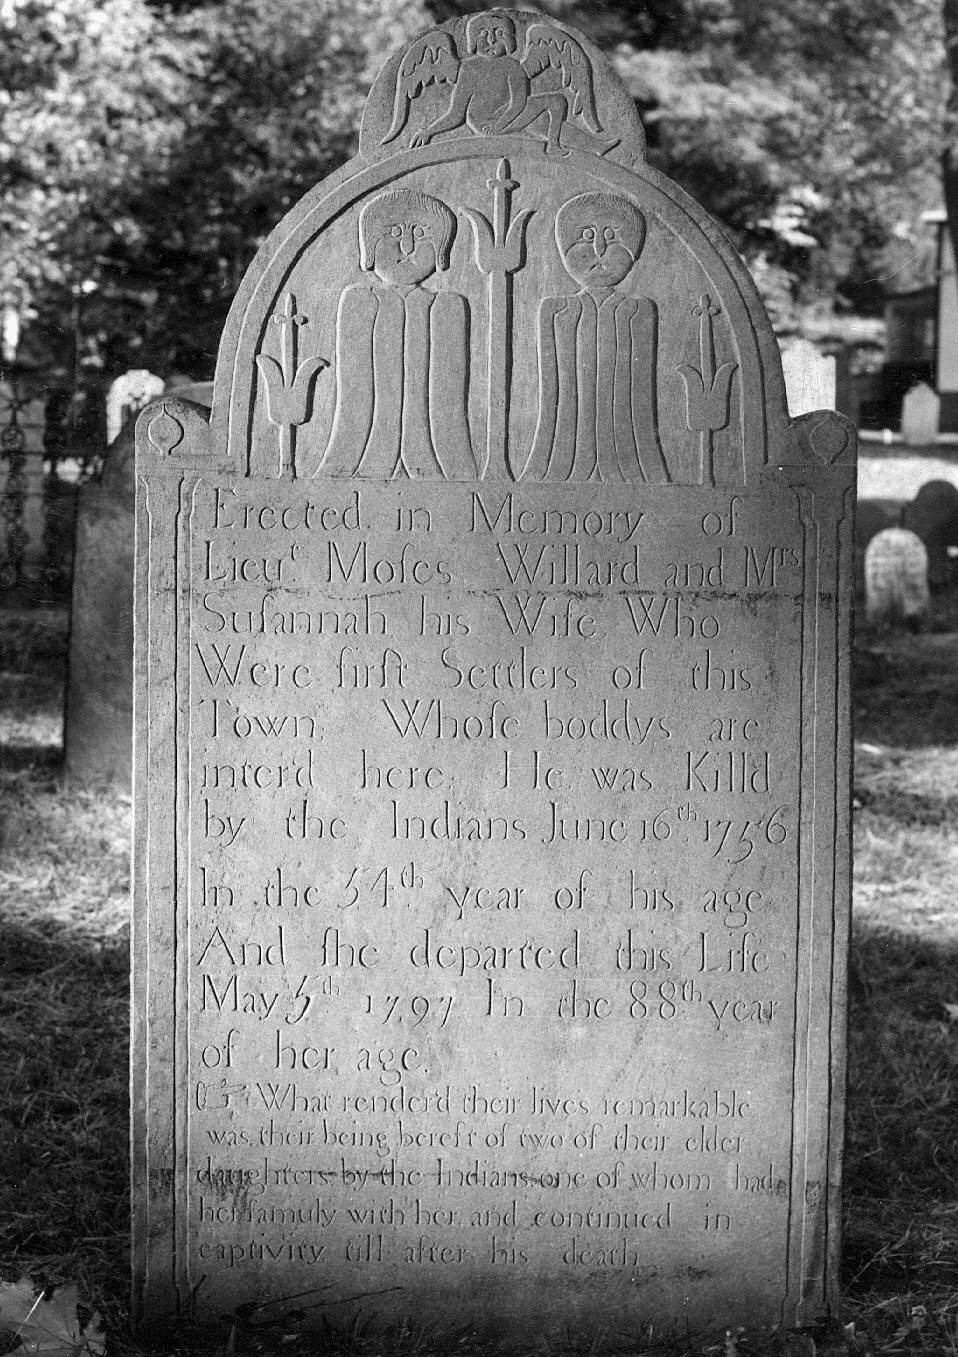 Erected in Memory of
Lieuᵗ. Moſes Willard and Mʳˢ
Suſannah his Wife Who
Were firſt Settlers of this
Town, Whoſe boddys are
inter'd here He was Kill'd
by the Indians June 16ᵗʰ 1756
In the 54ᵗʰ year of his age
And ſhe departed this Life
May 5ᵗʰ 1797 In the 88ᵗʰ year
of her age.
☞ What render'd their lives remarkable
was, their being bereft of two of their elder
daughters by the Indians one of whom had
her family with her and continued in
captivity till after his death